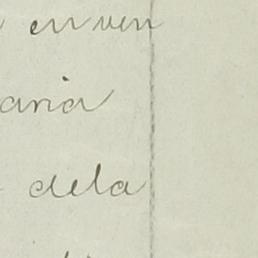 en ven
aria
dela